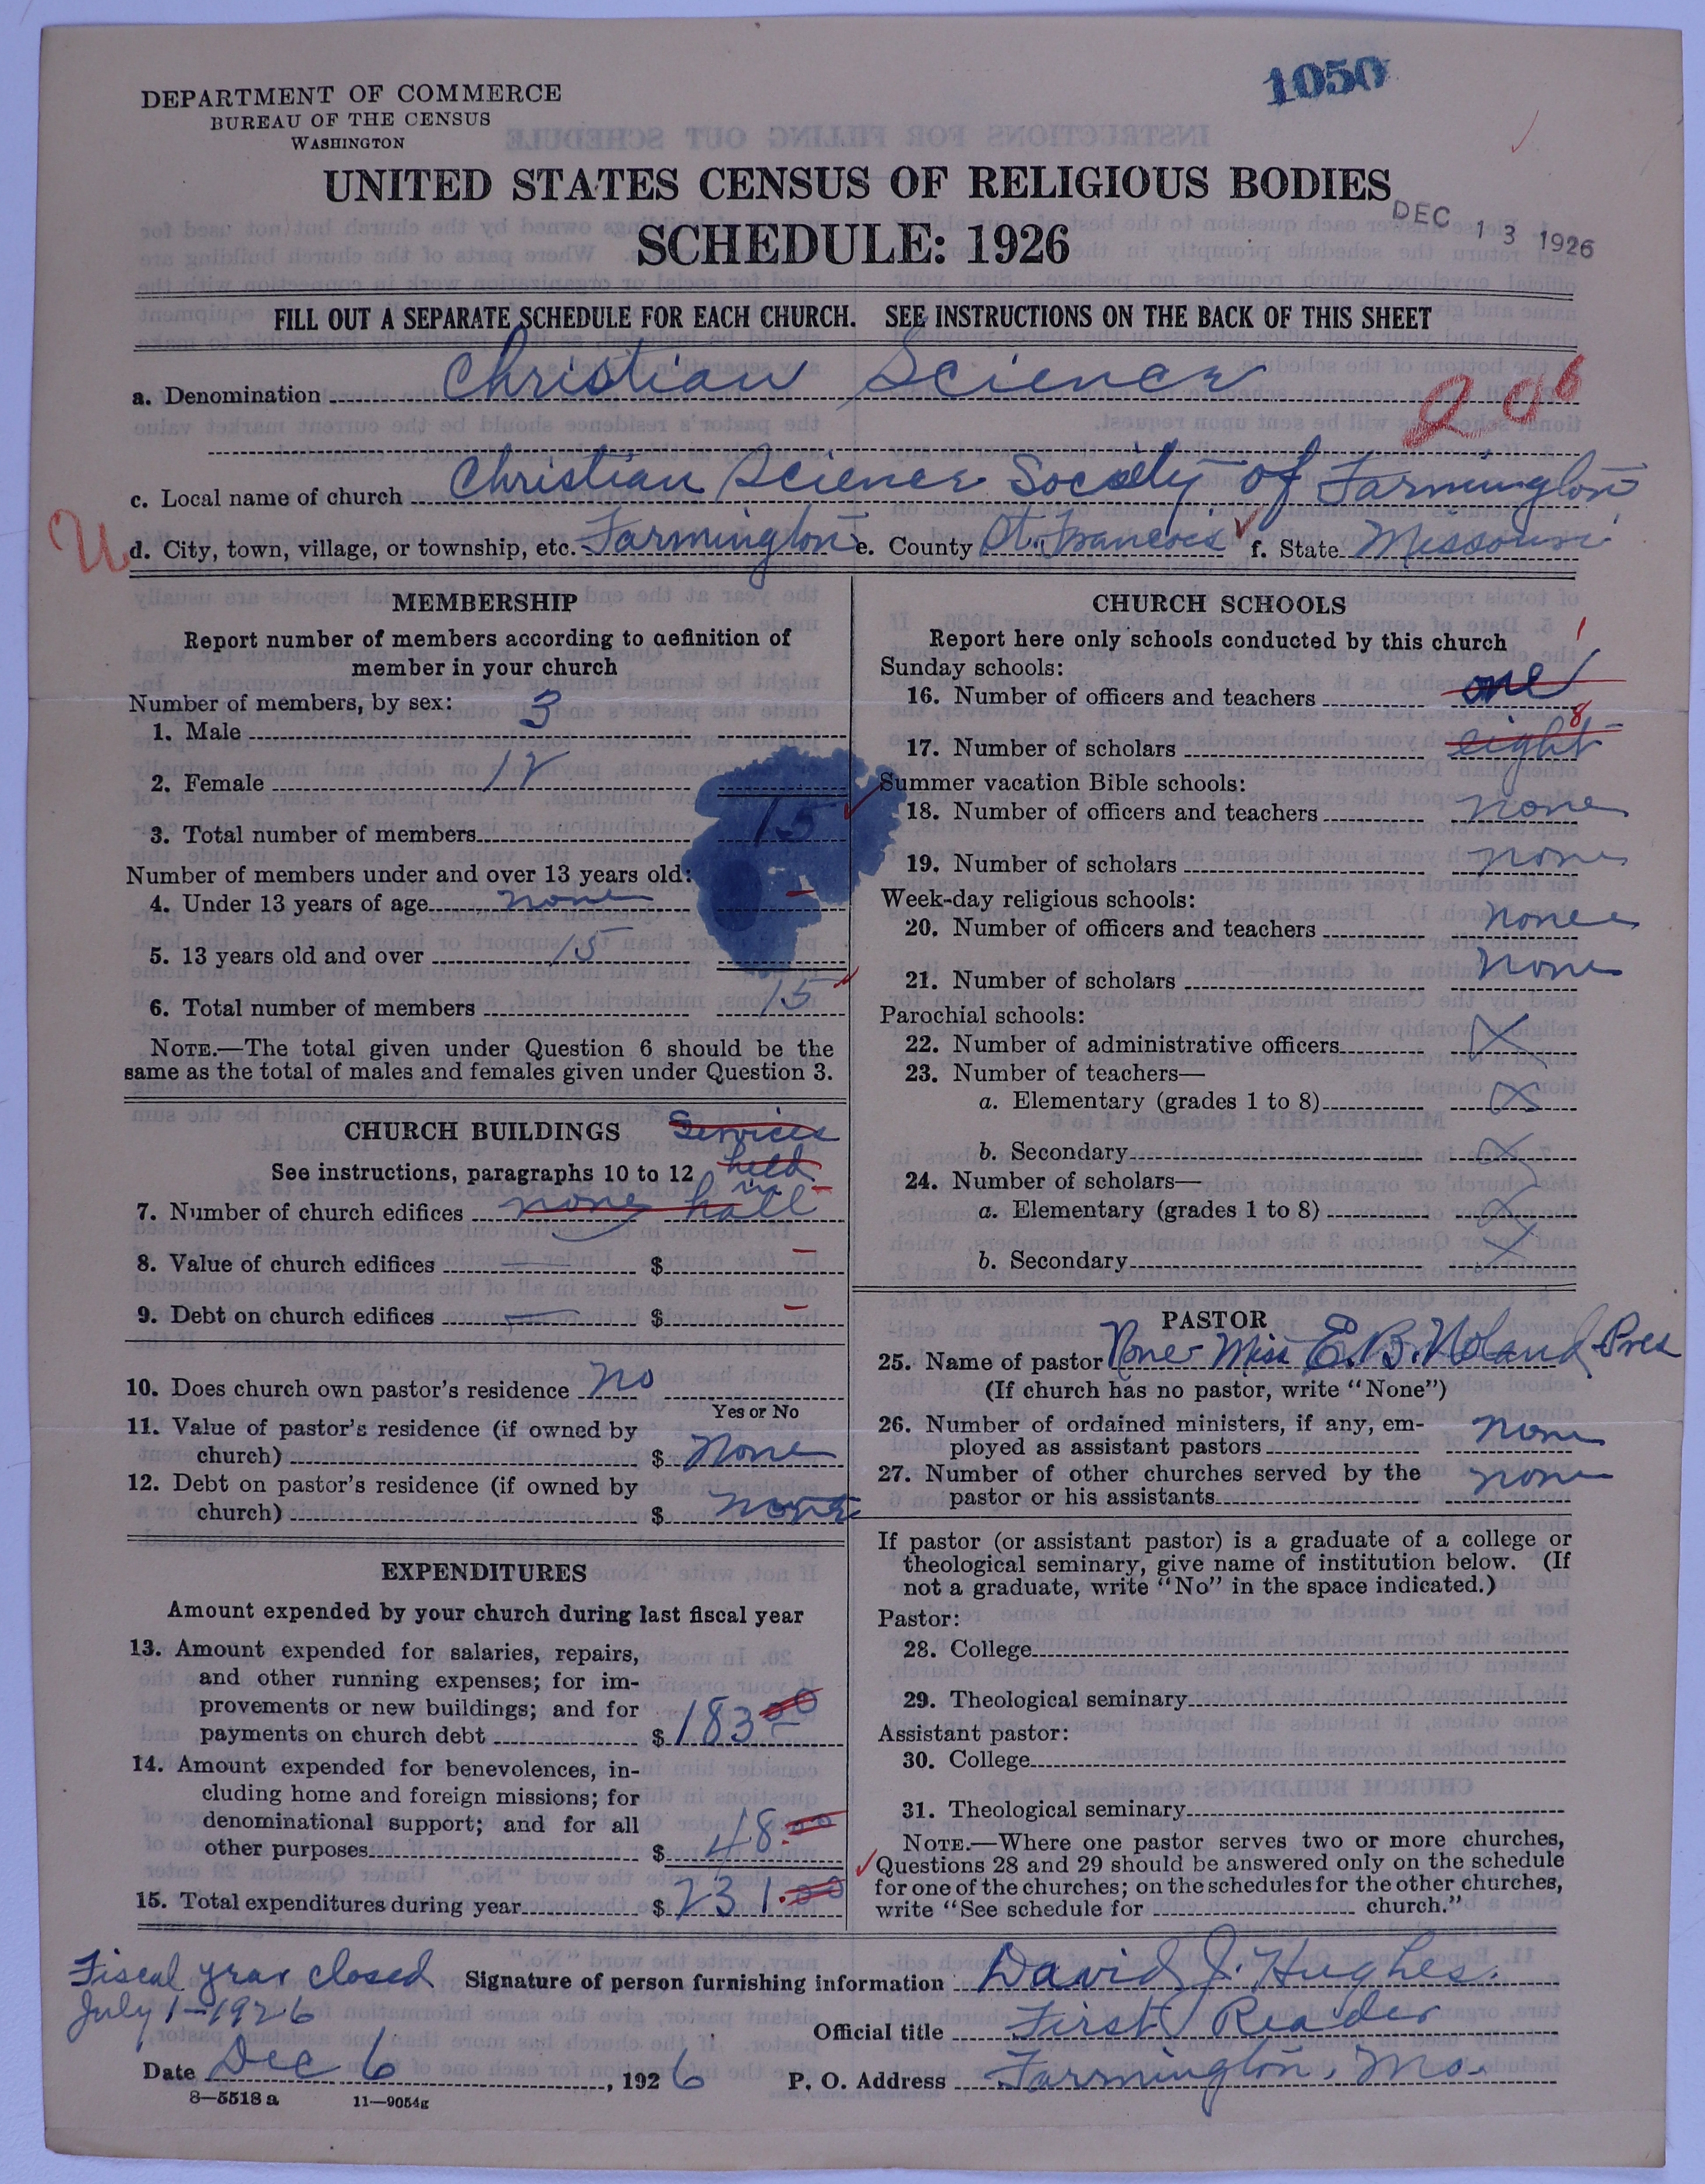 1050
DEPARTMENT OF COMMERCE
BUREAU OF THE CENSUS
WASHINGTON
UNITED STATES CENSUS OF RELIGIOUS BODIES
DEC 13 1926
SCHEDULE: 1926
FILL OUT A SEPARATE SCHEDULE FOR EACH CHURCH. SEE INSTRUCTIONS ON THE BACK OF THIS SHEET
a. Denomination Christian Science
c. Local name of church Christian Science Society of Farmington
U d. City, town, village, or township, etc. Farmington e. County St. Francois f. State Missouri
MEMBERSHIP
Report number of members according to definition of
member in your church
Number of members, by sex:
1. Male 3
2. Female 12
3. Total number of members 15
Number of members under and over 13 years old:
4. Under 13 years of age none
5. 13 years old and over 15
6. Total number of members 15
NOTE.—The total given under Question 6 should be the
same as the total of males and females given under Question 3.
CHURCH BUILDINGS Services
See instructions, paragraphs 10 to 12 held
in
7. Number of church edifices none hall
8. Value of church edifices — $ –
9. Debt on church edifices — $ –
10. Does church own pastor's residence no
Yes or No
11. Value of pastor's residence (if owned by
church) $ None
12. Debt on pastor's residence (if owned by
church) $ none
EXPENDITURES
Amount expended by your church during last fiscal year
13. Amount expended for salaries, repairs,
and other running expenses; for im-
provements or new buildings; and for
payments on church debt $ 183 00
14. Amount expended for benevolences, in-
cluding home and foreign missions; for
denominational support; and for all
other purposes $ 48.00
15. Total expenditures during year $ 231.00
CHURCH SCHOOLS
Report here only schools conducted by this church
Sunday schools: 1
16. Number of officers and teachers one
8
17. Number of scholars eight
Summer vacation Bible schools:
18. Number of officers and teachers none
19. Number of scholars none
Week-day religious schools:
20. Number of officers and teachers none
21. Number of scholars none
Parochial schools:
22. Number of administrative officers X
23. Number of teachers—
a. Elementary (grades 1 to 8) X
b. Secondary X
24. Number of scholars—
a. Elementary (grades 1 to 8) X
b. Secondary X
PASTOR
25. Name of pastor None- Miss E. B. Noland Pres
(If church has no pastor, write "None")
26. Number of ordained ministers, if any, em-
ployed as assistant pastors none
27. Number of other churches served by the
pastor or his assistants none
If pastor (or assistant pastor) is a graduate of a college or
theological seminary, give name of institution below. (If
not a graduate, write "No" in the space indicated.)
Pastor:
28. College
29. Theological seminary
Assistant pastor:
30. College
31. Theological seminary
NOTE.—Where one pastor serves two or more churches,
Questions 28 and 29 should be answered only on the schedule
for one of the churches; on the schedules for the other churches,
write "See schedule for church."
Fiscal year closed
July 1-1926
Signature of person furnishing information David J. Hughes.
Official title First Reader
Date Dec 6, 1926 P. O. Address Farmington, Mo.
8—5518 a 11—9054g